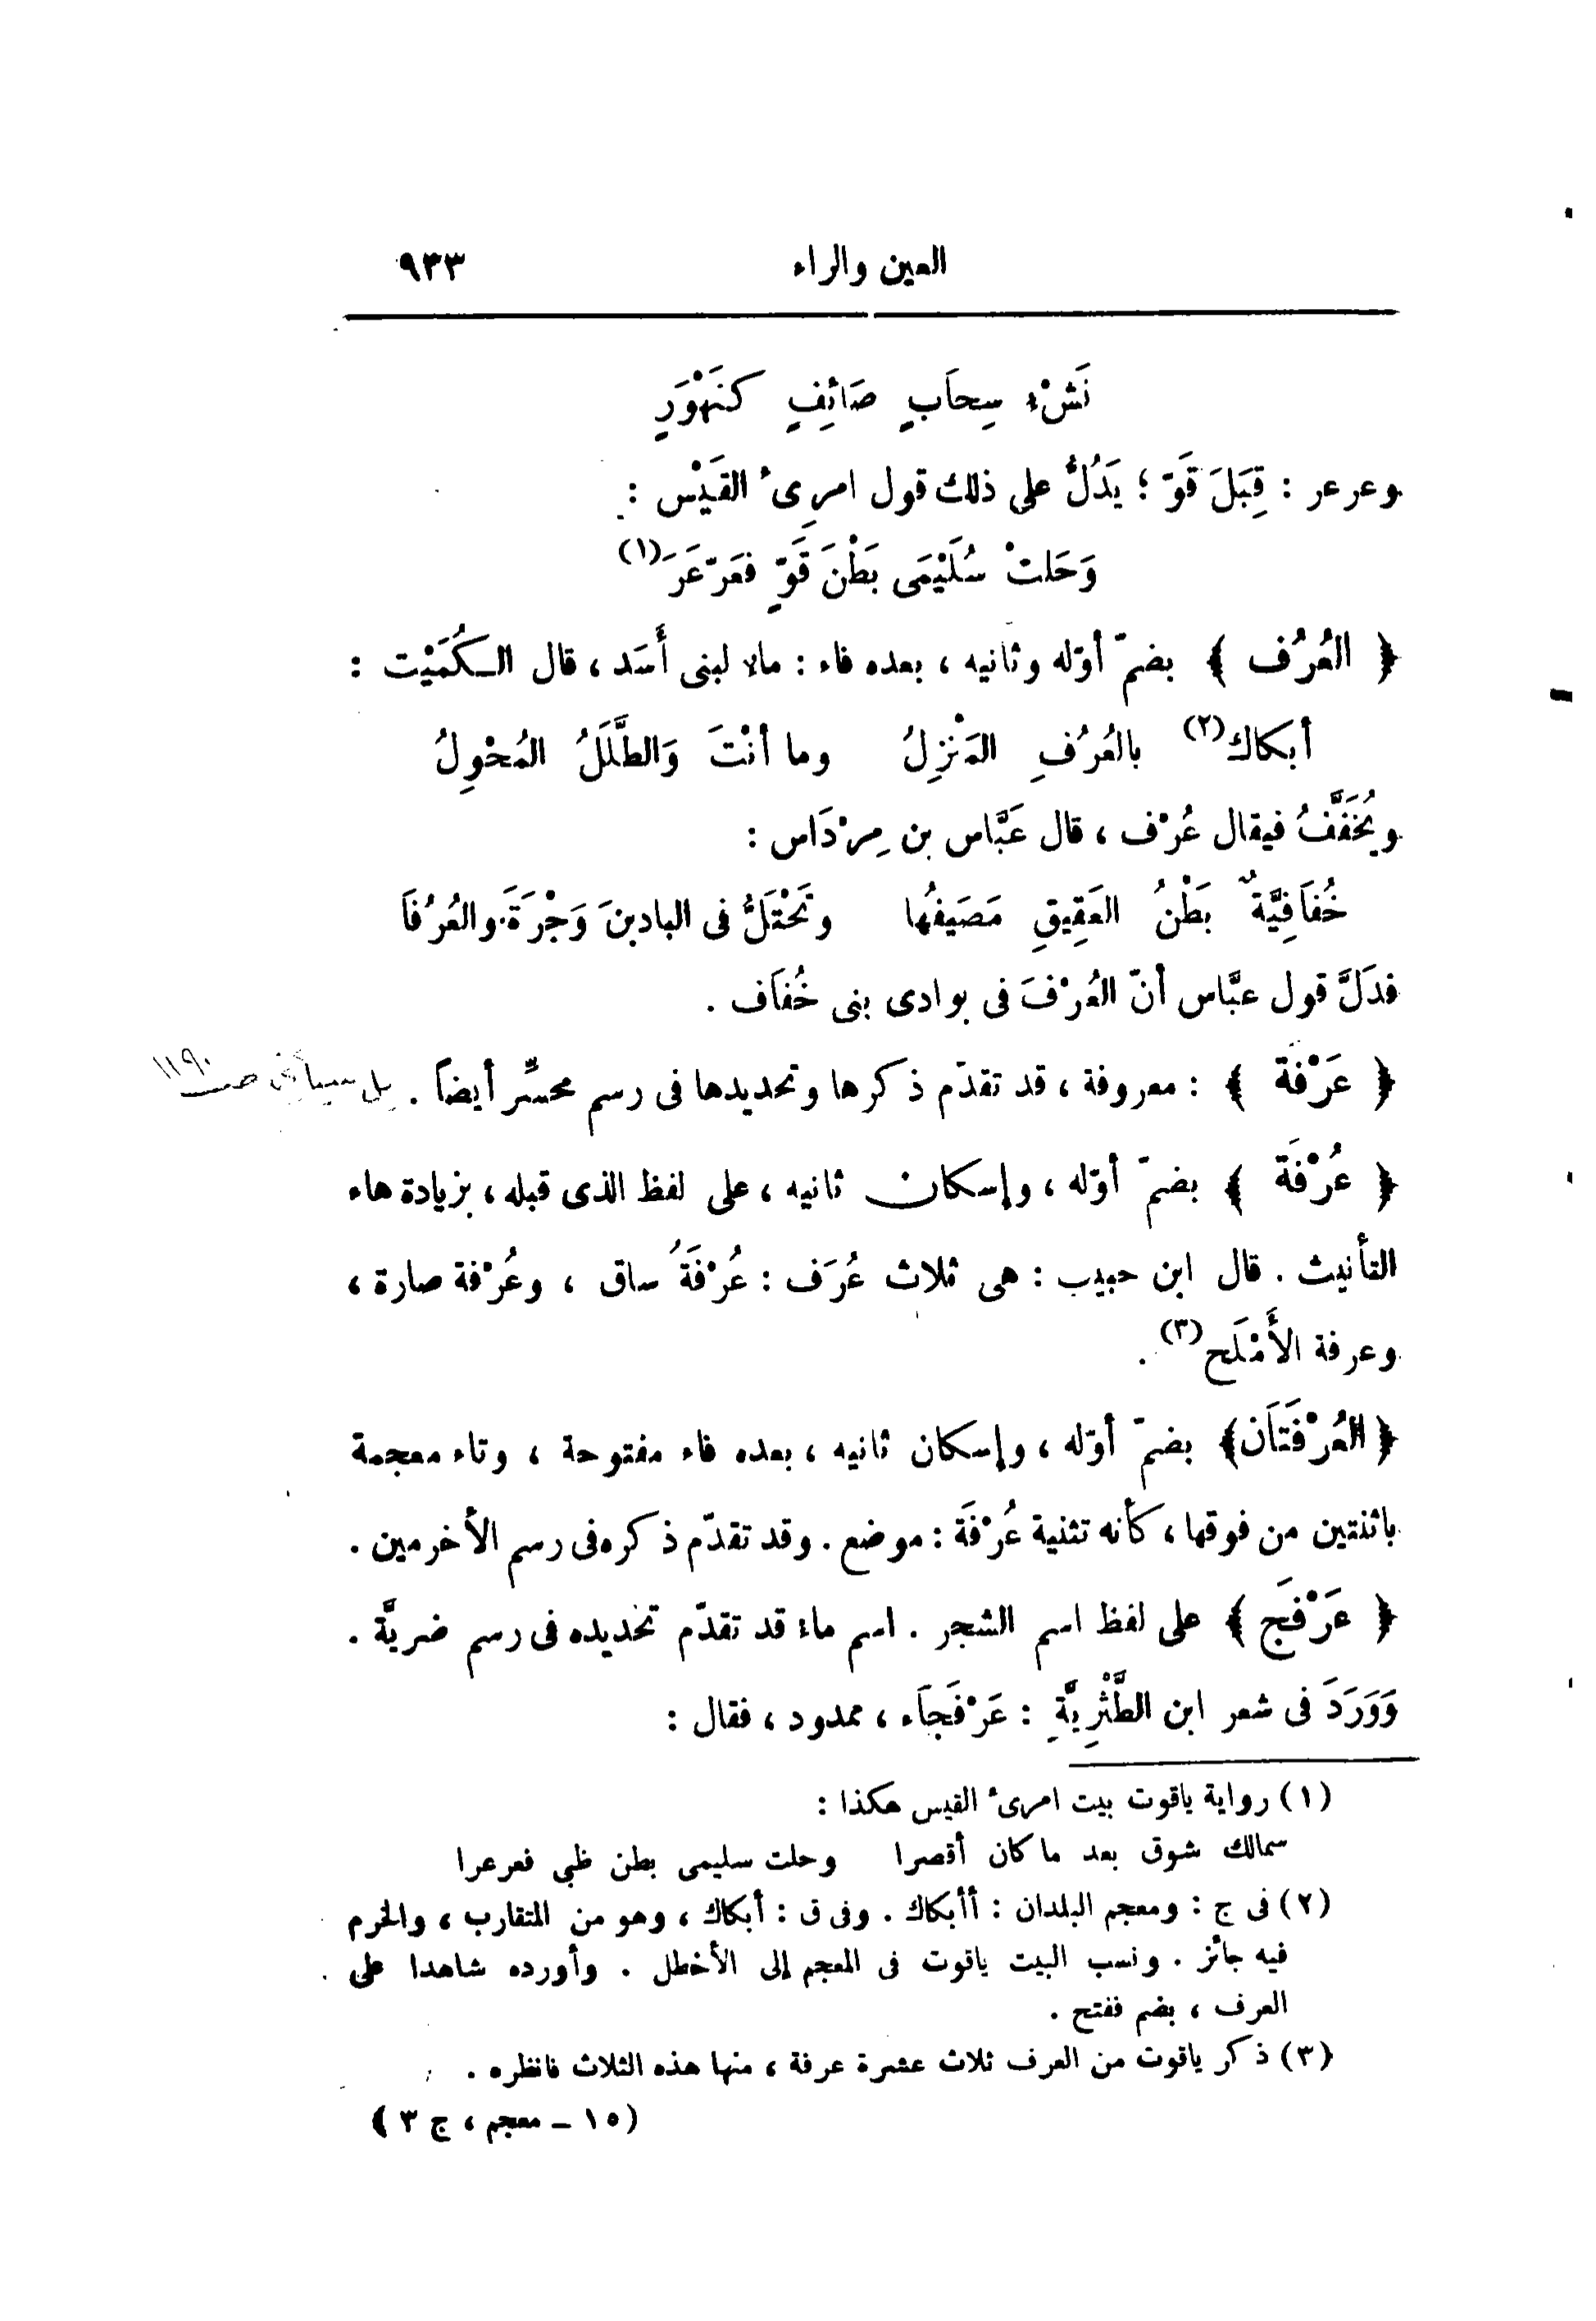 العين والراء ٩٣٣
نَشْءِ سِحاَبٍ صَائِفٍ كنَهْوَرٍ
وعرعر : قِبَلَ قَوّ ؛ يَدُلُّ على ذلك قول امرِئ القَيْس :
وَحَلتْ سُلَيْمَى بَطْنَ قَوٍّ فعَرْعَرَ(١)
﴿ العُرُف ﴾ بضمّ أوّله وثانيه ، بعده فاء : ماء لبنى أَسَد ، قال الكُمَيْت :
أبكاك(٢) بالعُرُفِ المَنْزِلُ وما أنْتَ وَالطَّلَلُ المُحْوِلُ
ويُخَفَّفُ فيقال عُرْف ، قال عَبَّاس بن مِرْدَاس :
خُفَافِيَّةٌ بَطْنُ العَقِيقِ مَصَيفُها وتَحْتَلُّ فى البادينَ وَجْرَةَ والعُرُفاَ
فدَلَّ قول عبَّاس أنّ العُرْفَ فى بوادى بنى خُفاَف .
﴿ عَرْفَة ﴾ : معروفة ، قد تقدّم ذكرها وتحديدها فى رسم محسِّر أيضاً . بل سيأتى صـ ١١٩٠
﴿ عُرْفَة ﴾ بضمّ أوّله ، وإسكان ثانيه ، على لفظ الذى قبله ، بزيادة هاء
التأنيث . قال ابن حبيب : هى ثلاث عُرَف : عُرْفَةُ ساق ، وعُرْفة صارة ،
وعرفة الأَمْلَح(٣) .
﴿العُرْفَتَان﴾ بضمّ أوّله ، وإسكان ثانيه ، بعده فاء مفتوحة ، وتاء معجمة
باثنتين من فوقها ، كأنه تثنية عُرْفَة : موضع . وقد تقدّم ذكره فى رسم الأخرمين .
﴿ عَرْفَج ﴾ على لفظ اسم الشجر . اسم ماء قد تقدّم تحديده فى رسم ضريَّة .
وَوَرَدَ فى شعر ابن الطَّثْرِيَّةِ : عَرْفَجاَء ، ممدود ، فقال :
(١) رواية ياقوت بيت امرئ القيس هكذا :
سمالك شوق بعد ما كان أقصرا وحلت سليمى بطن ظبى فعرعرا
(٢) فى ج : ومعجم البلدان : أأبكاك . وفى ق : أبكاك ، وهو من المتقارب ، والخرم
فيه جائز . ونسب البيت ياقوت فى المعجم إلى الأخطل . وأورده شاهدا على
العرف ، بضم ففتح .
(٣) ذكر ياقوت من العرف ثلاث عشرة عرفة ، منها هذه الثلاث فانظره .
(١٥ - معجم ، ج ٣ )